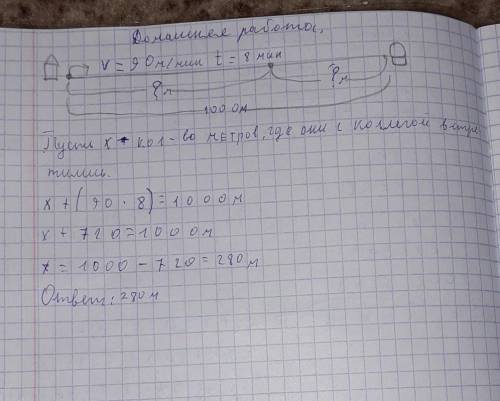 Домашняя работа,
V = 90м/мин t = 8 мин
?м ?м
1000м
Пусть х - кол-во метров, где они с коллегой встре
тились.
х + (90 · 8) = 1000м
х + 720 = 1000м
х = 1000 - 720 = 280м
Ответ: 280м